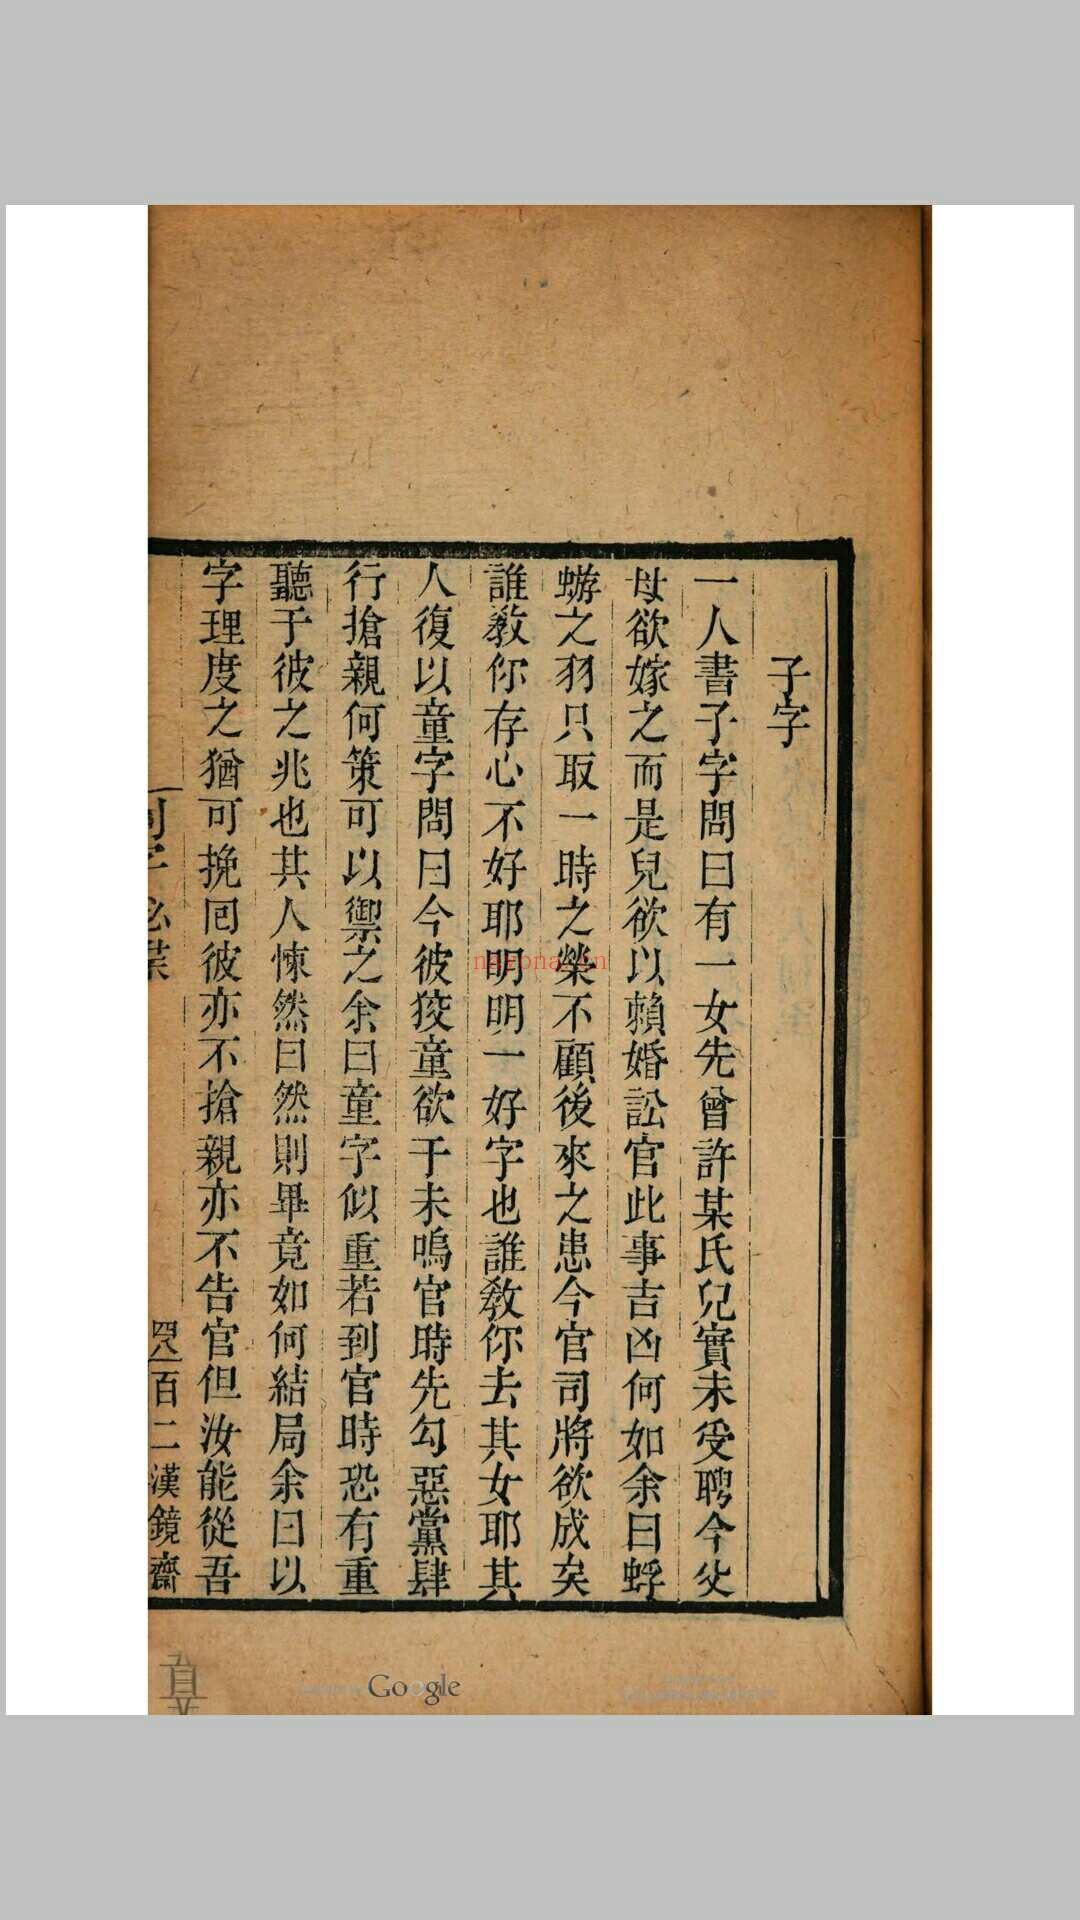 子字
一人書子字問曰有一女先曾許某氏兒實未受聘今父
母欲嫁之而是兒欲以賴婚訟官此事吉凶何如余曰蜉
蝣之羽只取一時之榮不顧後來之患今官司將欲成矣
誰教你存心不好耶明明一好字也誰教你去其女耶其
人復以童字問曰今彼狡童欲于未鳴官時先勾惡黨肆
行搶親何策可以禦之余曰童字似重若到官時恐有重
聽于彼之兆也其人悚然曰然則畢竟如何結局余曰以
字理度之猶可挽囘彼亦不搶親亦不告官但汝能從吾
百二漢鏡齋
nayona.cn
Google